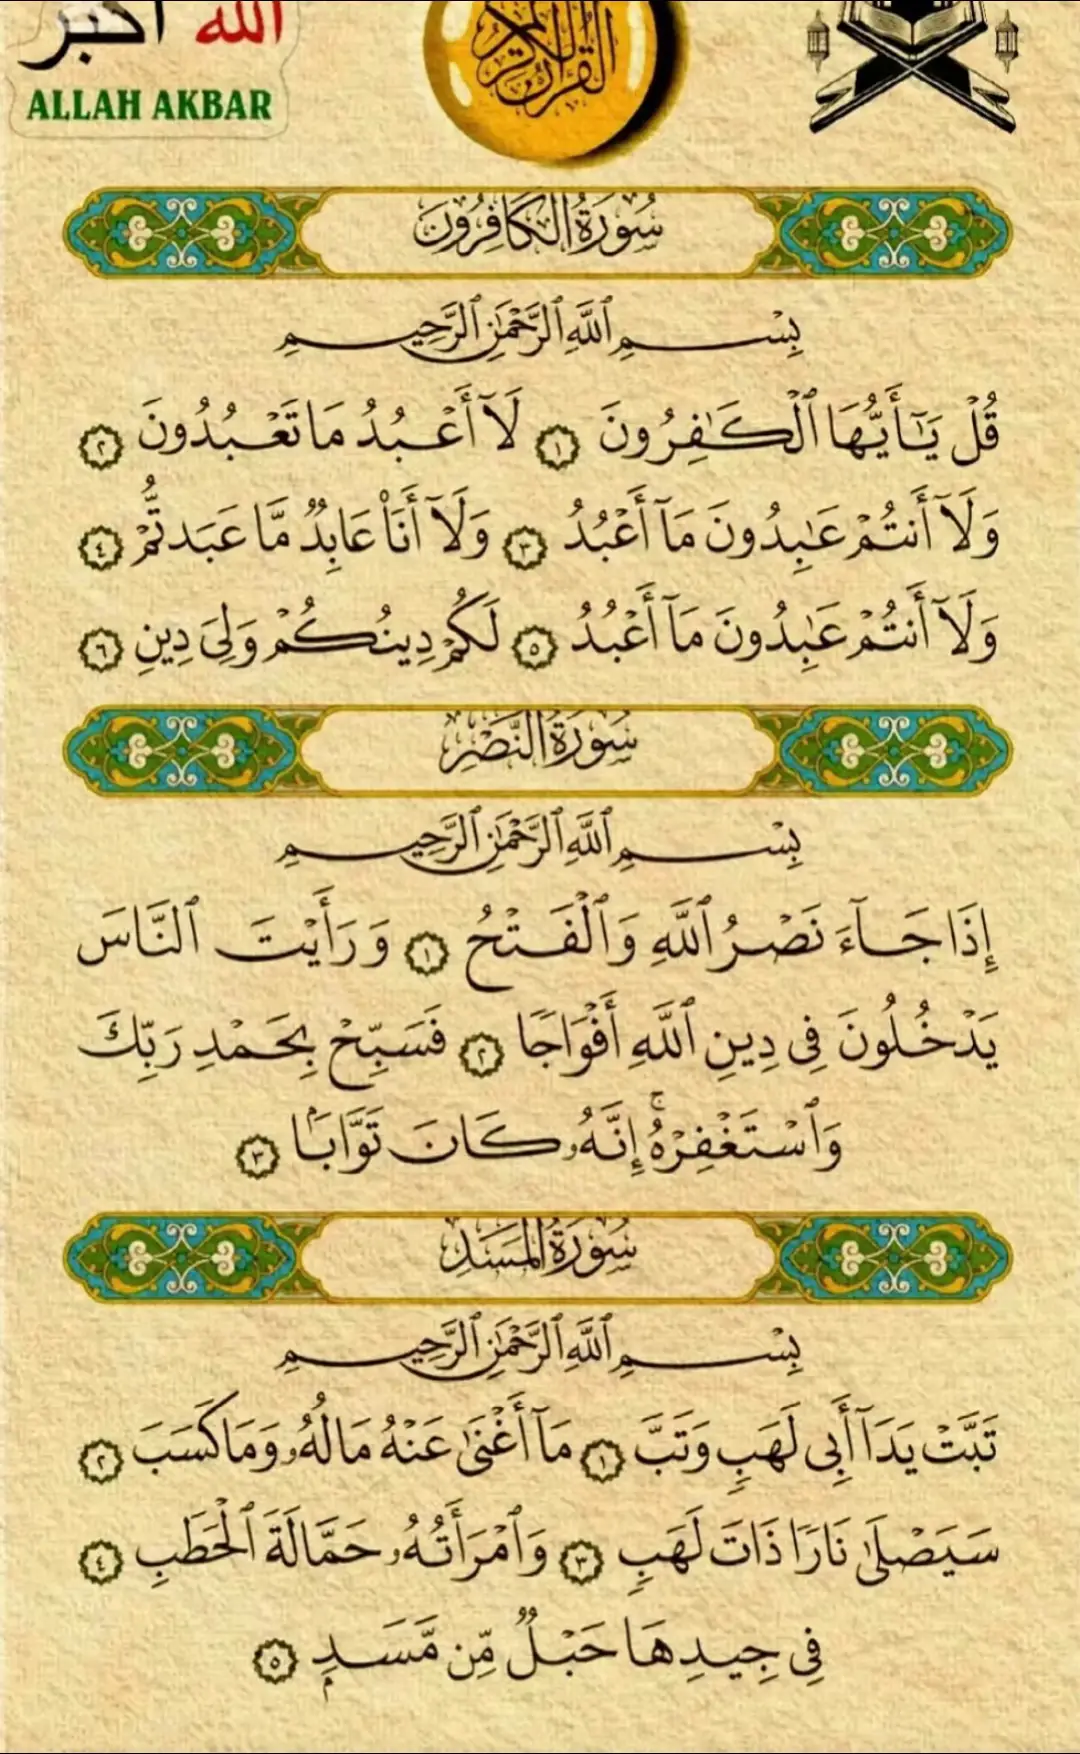 الله أكبر
ALLAH AKBAR
القرآن الكريم
سُورَةُ الكَافِرُونَ
بِسْمِ ٱللَّهِ ٱلرَّحْمَٰنِ ٱلرَّحِيمِ
قُلْ يَٰٓأَيُّهَا ٱلْكَٰفِرُونَ ١ لَآ أَعْبُدُ مَا تَعْبُدُونَ ٢
وَلَآ أَنتُمْ عَٰبِدُونَ مَآ أَعْبُدُ ٣ وَلَآ أَنَا۠ عَابِدٌ مَّا عَبَدتُّمْ ٤
وَلَآ أَنتُمْ عَٰبِدُونَ مَآ أَعْبُدُ ٥ لَكُمْ دِينُكُمْ وَلِىَ دِينِ ٦
سُورَةُ النَّصْرِ
بِسْمِ ٱللَّهِ ٱلرَّحْمَٰنِ ٱلرَّحِيمِ
إِذَا جَآءَ نَصْرُ ٱللَّهِ وَٱلْفَتْحُ ١ وَرَأَيْتَ ٱلنَّاسَ
يَدْخُلُونَ فِى دِينِ ٱللَّهِ أَفْوَاجًا ٢ فَسَبِّحْ بِحَمْدِ رَبِّكَ
وَٱسْتَغْفِرْهُ ۚ إِنَّهُۥ كَانَ تَوَّابًۢا ٣
سُورَةُ المَسَدِ
بِسْمِ ٱللَّهِ ٱلرَّحْمَٰنِ ٱلرَّحِيمِ
تَبَّتْ يَدَآ أَبِى لَهَبٍ وَتَبَّ ١ مَآ أَغْنَىٰ عَنْهُ مَالُهُۥ وَمَا كَسَبَ ٢
سَيَصْلَىٰ نَارًا ذَاتَ لَهَبٍ ٣ وَٱمْرَأَتُهُۥ حَمَّالَةَ ٱلْحَطَبِ ٤
فِى جِيدِهَا حَبْلٌ مِّن مَّسَدٍۭ ٥